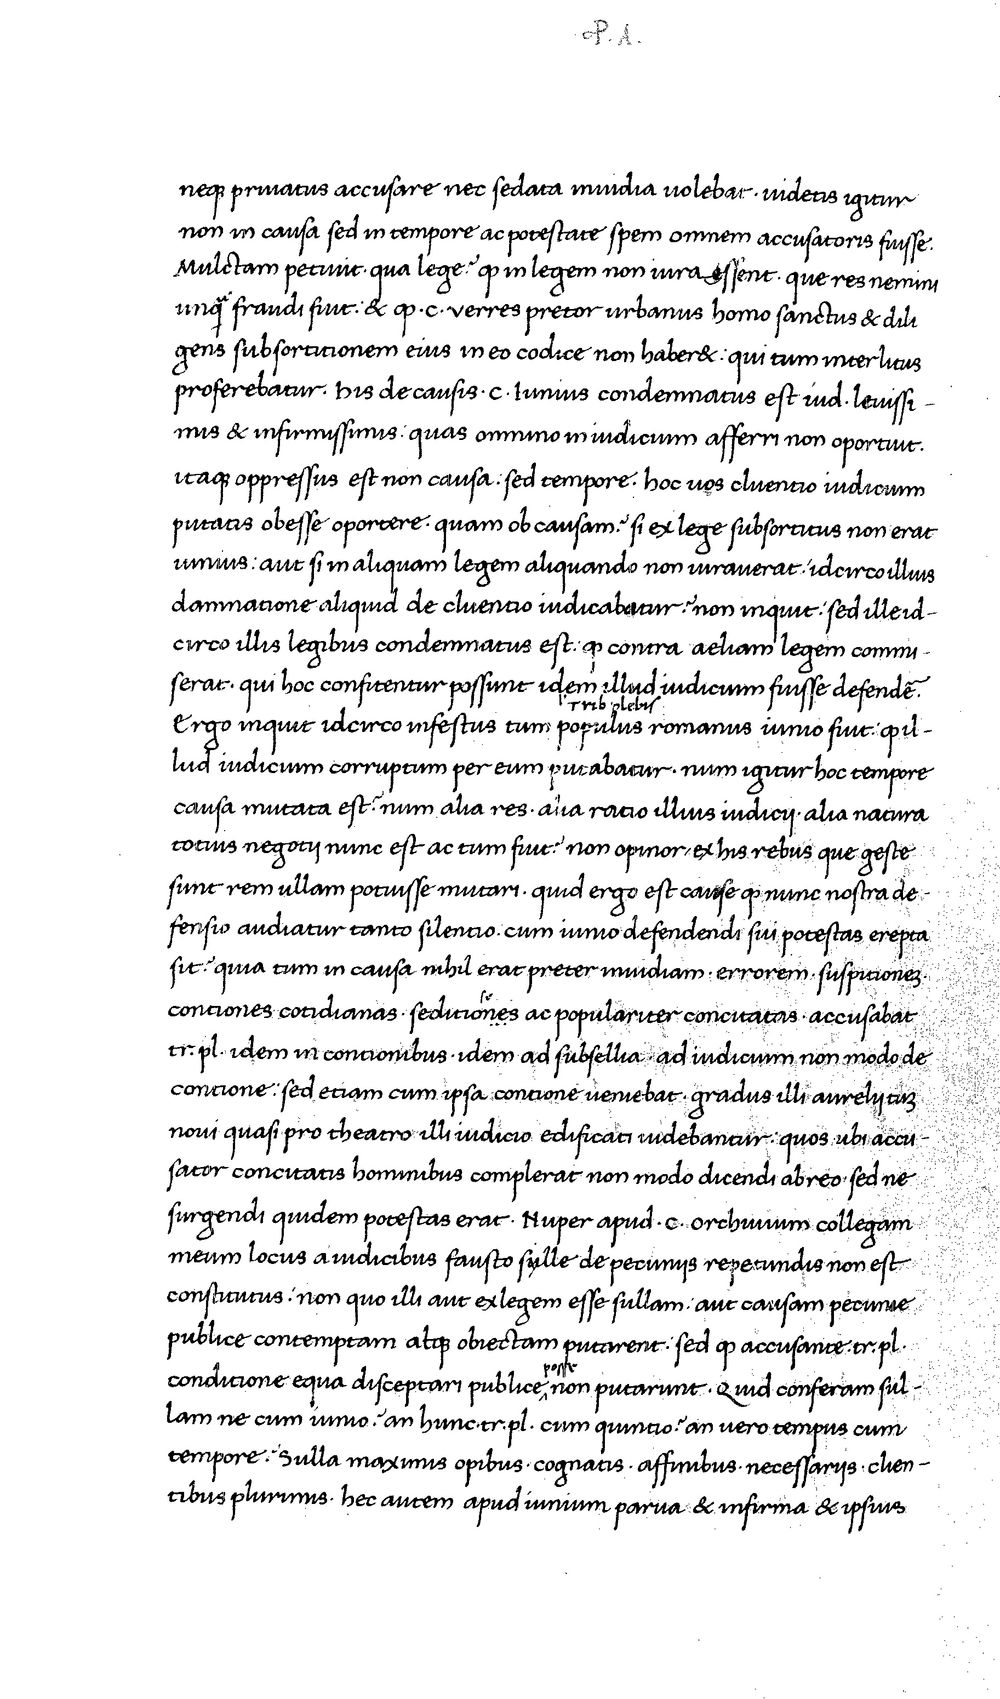 P. A.
neqꝫ priuatus accusare nec sedata inuidia uolebat · uidetis igitur
non in causa sed in tempore ac potestate spem omnem accusatoris fuisse.
Mulctam petiuit · qua lege? ꝙ in legem non iurassent · que res nemini
unqᷓ fraudi fuit: & ꝙ · C · verres pretor urbanus homo sanctus & dili
gens subsortitionem eius in eo codice non haber&: qui tum interlitus
proferebatur. his de causis · C · Iunius condemnatus est iud. leuissi -
mis & infirmissimis: quas omnino in iudicium afferri non oportuit.
itaqꝫ oppressus est non causa: sed tempore · hoc uos cluentio iudicium
putatis obesse oportere · quam ob causam? si ex lege subsortitus non erat
iunius: aut si in aliquam legem aliquando non iurauerat: idcirco illius
damnatione aliquid de cluentio iudicabatur? non inquit: sed ille id -
circo illis legibus condemnatus est: ꝙ contra aeliam legem commi -
serat · qui hoc confitentur possunt idem illud iudicium fuisse defendē?
Trib plebis
Ergo inquit idcirco infestus tum populus romanus iunio fuit: ꝙ il -
lud iudicium corruptum per eum putabatur · num igitur hoc tempore
causa mutata est? num alia res · alia ratio illius iudicij · alia natura
totius negotij nunc est ac tum fuit? non opinor ex his rebus que geste
sunt rem ullam potuisse mutari · quid ergo est cause ꝙ nunc nostra de -
fensio audiatur tanto silentio · cum iunio defendendi sui potestas erepta
sit? quia tum in causa nihil erat preter inuidiam · errorem · suspitioneꝫ ·
contiones cotidianas · seditiones ac populariter concitatas · accusabat
tr. pl. idem in contionibus · idem ad subsellia · ad iudicium non modo de
contione: sed etiam cum ipsa contione ueniebat · gradus illi aurelij tuꝫ
noui quasi pro theatro illi iudicio edificati uidebantur: quos ubi accu -
sator concitatis hominibus complerat non modo dicendi ab reo sed ne
surgendi quidem potestas erat · Nuper apud · C · orchiuium collegam
meum locus a iudicibus fausto sylle de pecunijs repetundis non est
constitutus: non quo illi aut exlegem esse sullam: aut causam pecunie
publice contemptam atqꝫ obiectam putarent: sed ꝙ accusante · tr. pl.
posse
conditione equa disceptari publice non putarunt · Quid conferam sul -
lam ne cum iunio? an hunc · tr. pl. cum quintio? an uero tempus cum
tempore? Sulla maximis opibus · cognatis · affinibus · necessarijs · clien -
tibus plurimis · hec autem apud iunium parua & infirma & ipsius